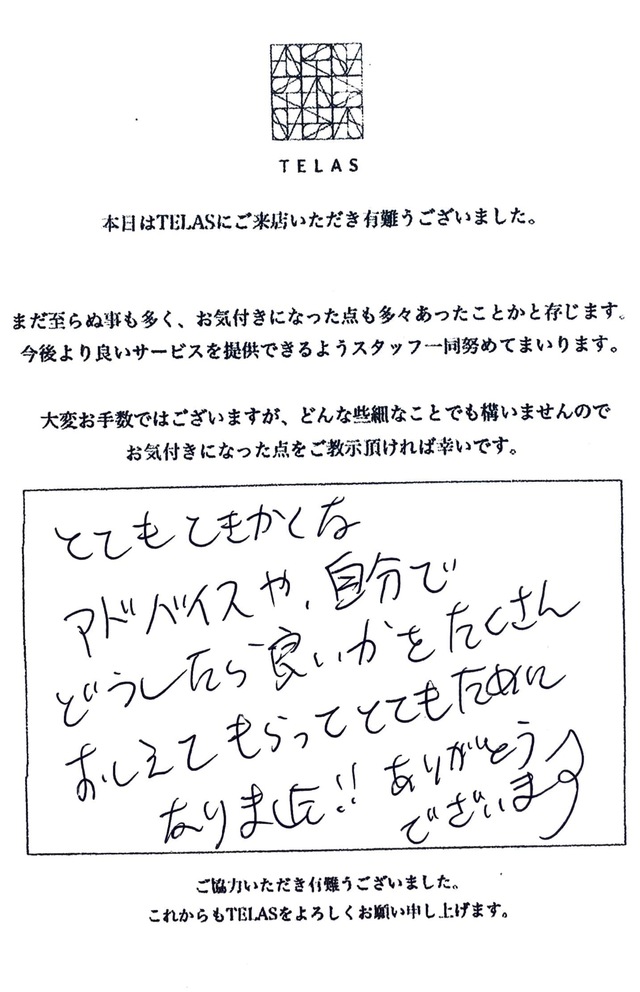 TELAS
本日はTELASにご来店いただき有難うございました。
まだ至らぬ事も多く、お気付きになった点も多々あったことかと存じます。
今後より良いサービスを提供できるようスタッフ一同努めてまいります。
大変お手数ではございますが、どんな些細なことでも構いませんので
お気付きになった点をご教示頂ければ幸いです。
とてもてきかくな
アドバイスや、自分で
どうしたら良いかをたくさん
おしえてもらってとてもために
なりました!! ありがとう
ございます
ご協力いただき有難うございました。
これからもTELASをよろしくお願い申し上げます。